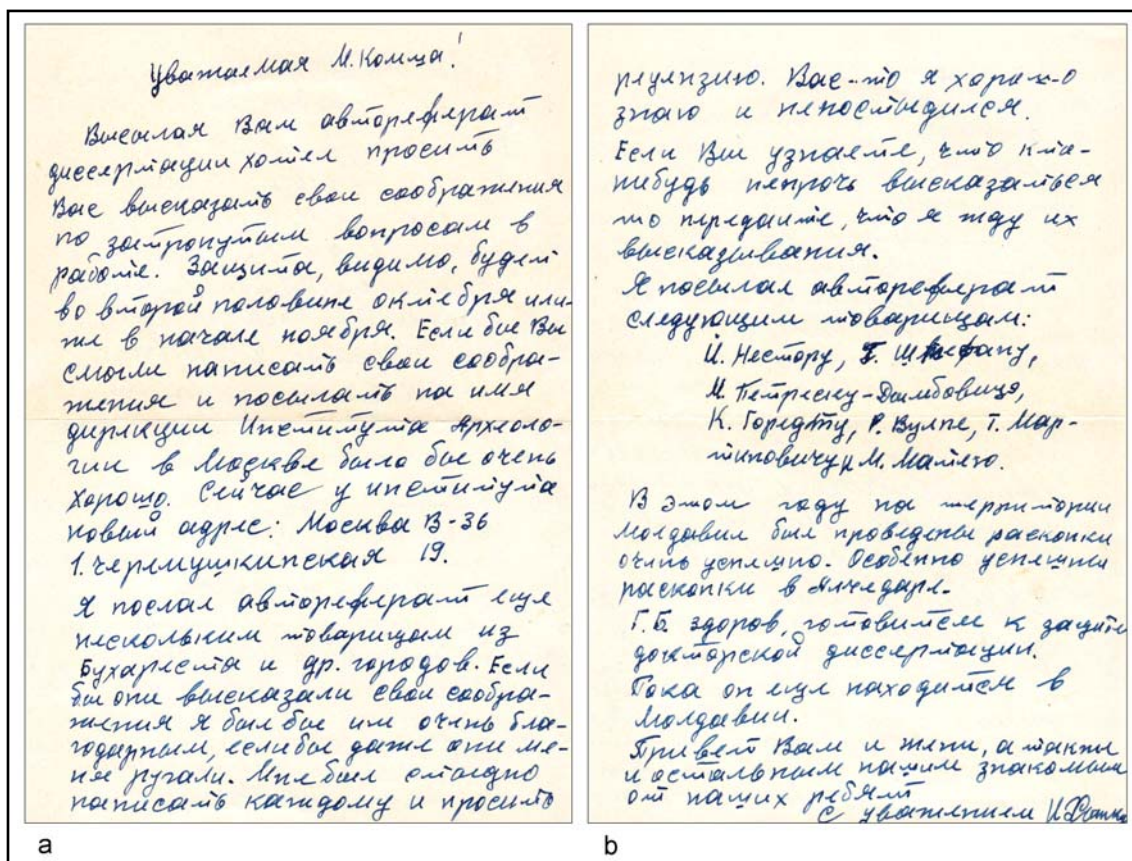 Уважаемая М. Комша!
Высылая Вам автореферат
диссертации хотел просить
Вас высказать свои соображения
по затронутым вопросам в
работе. Защита, видимо, будет
во второй половине октября или
же в начале ноября. Если бы Вы
смогли написать свои сообра-
жения и посылать на имя
дирекции Института Археоло-
гии в Москве было бы очень
хорошо. Сейчас у института
новый адрес: Москва В-36
1. Черемушкинская 19.
Я послал автореферат еще
нескольким товарищам из
Бухареста и др. городов. Если
бы они высказали свои сообра-
жения я был бы им очень бла-
годарным, если бы даже они ме-
ня ругали. Мне было стыдно
написать каждому и просить
a
рецензию. Вас-то я хорошо
знаю и непостыдился.
Если Вы узнаете, что кто-
нибудь непрочь высказаться
то передайте, что я жду их
высказывания.
Я посылал автореферат
следующим товарищам:
И. Нестору, Г. Штефану,
М. Петреску-Дымбовица,
К. Горедту, Р. Вулпе, Т. Мар-
тиновичу и М. Матею.
В этом году на территории
Молдавии был проведены раскопки
очень успешно. Особенно успешны
раскопки в Алчедаре.
Г.Б. здоров, готовится к защите
докторской диссертации.
Пока он еще находится в
Молдавии.
Привет Вам и жени, а также
и остальным нашим знакомым
от наших ребят
С уважением И.
b